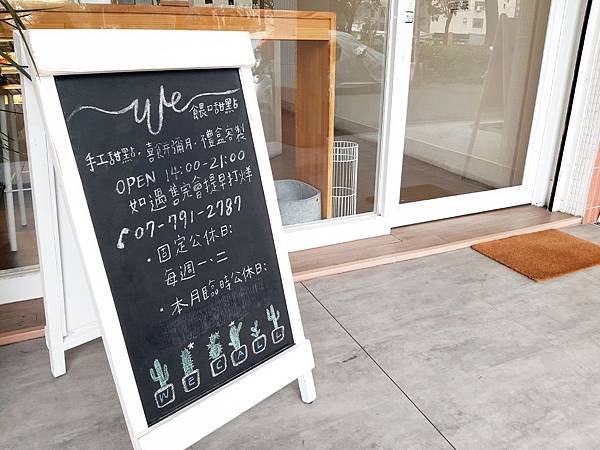 We 餵口甜點
手工甜點·喜餅彌月·禮盒客製
OPEN 14:00-21:00
如遇售完會提早打烊
07-791-2787
·固定公休日:
每週一.二
·本月臨時公休日:
WECALL